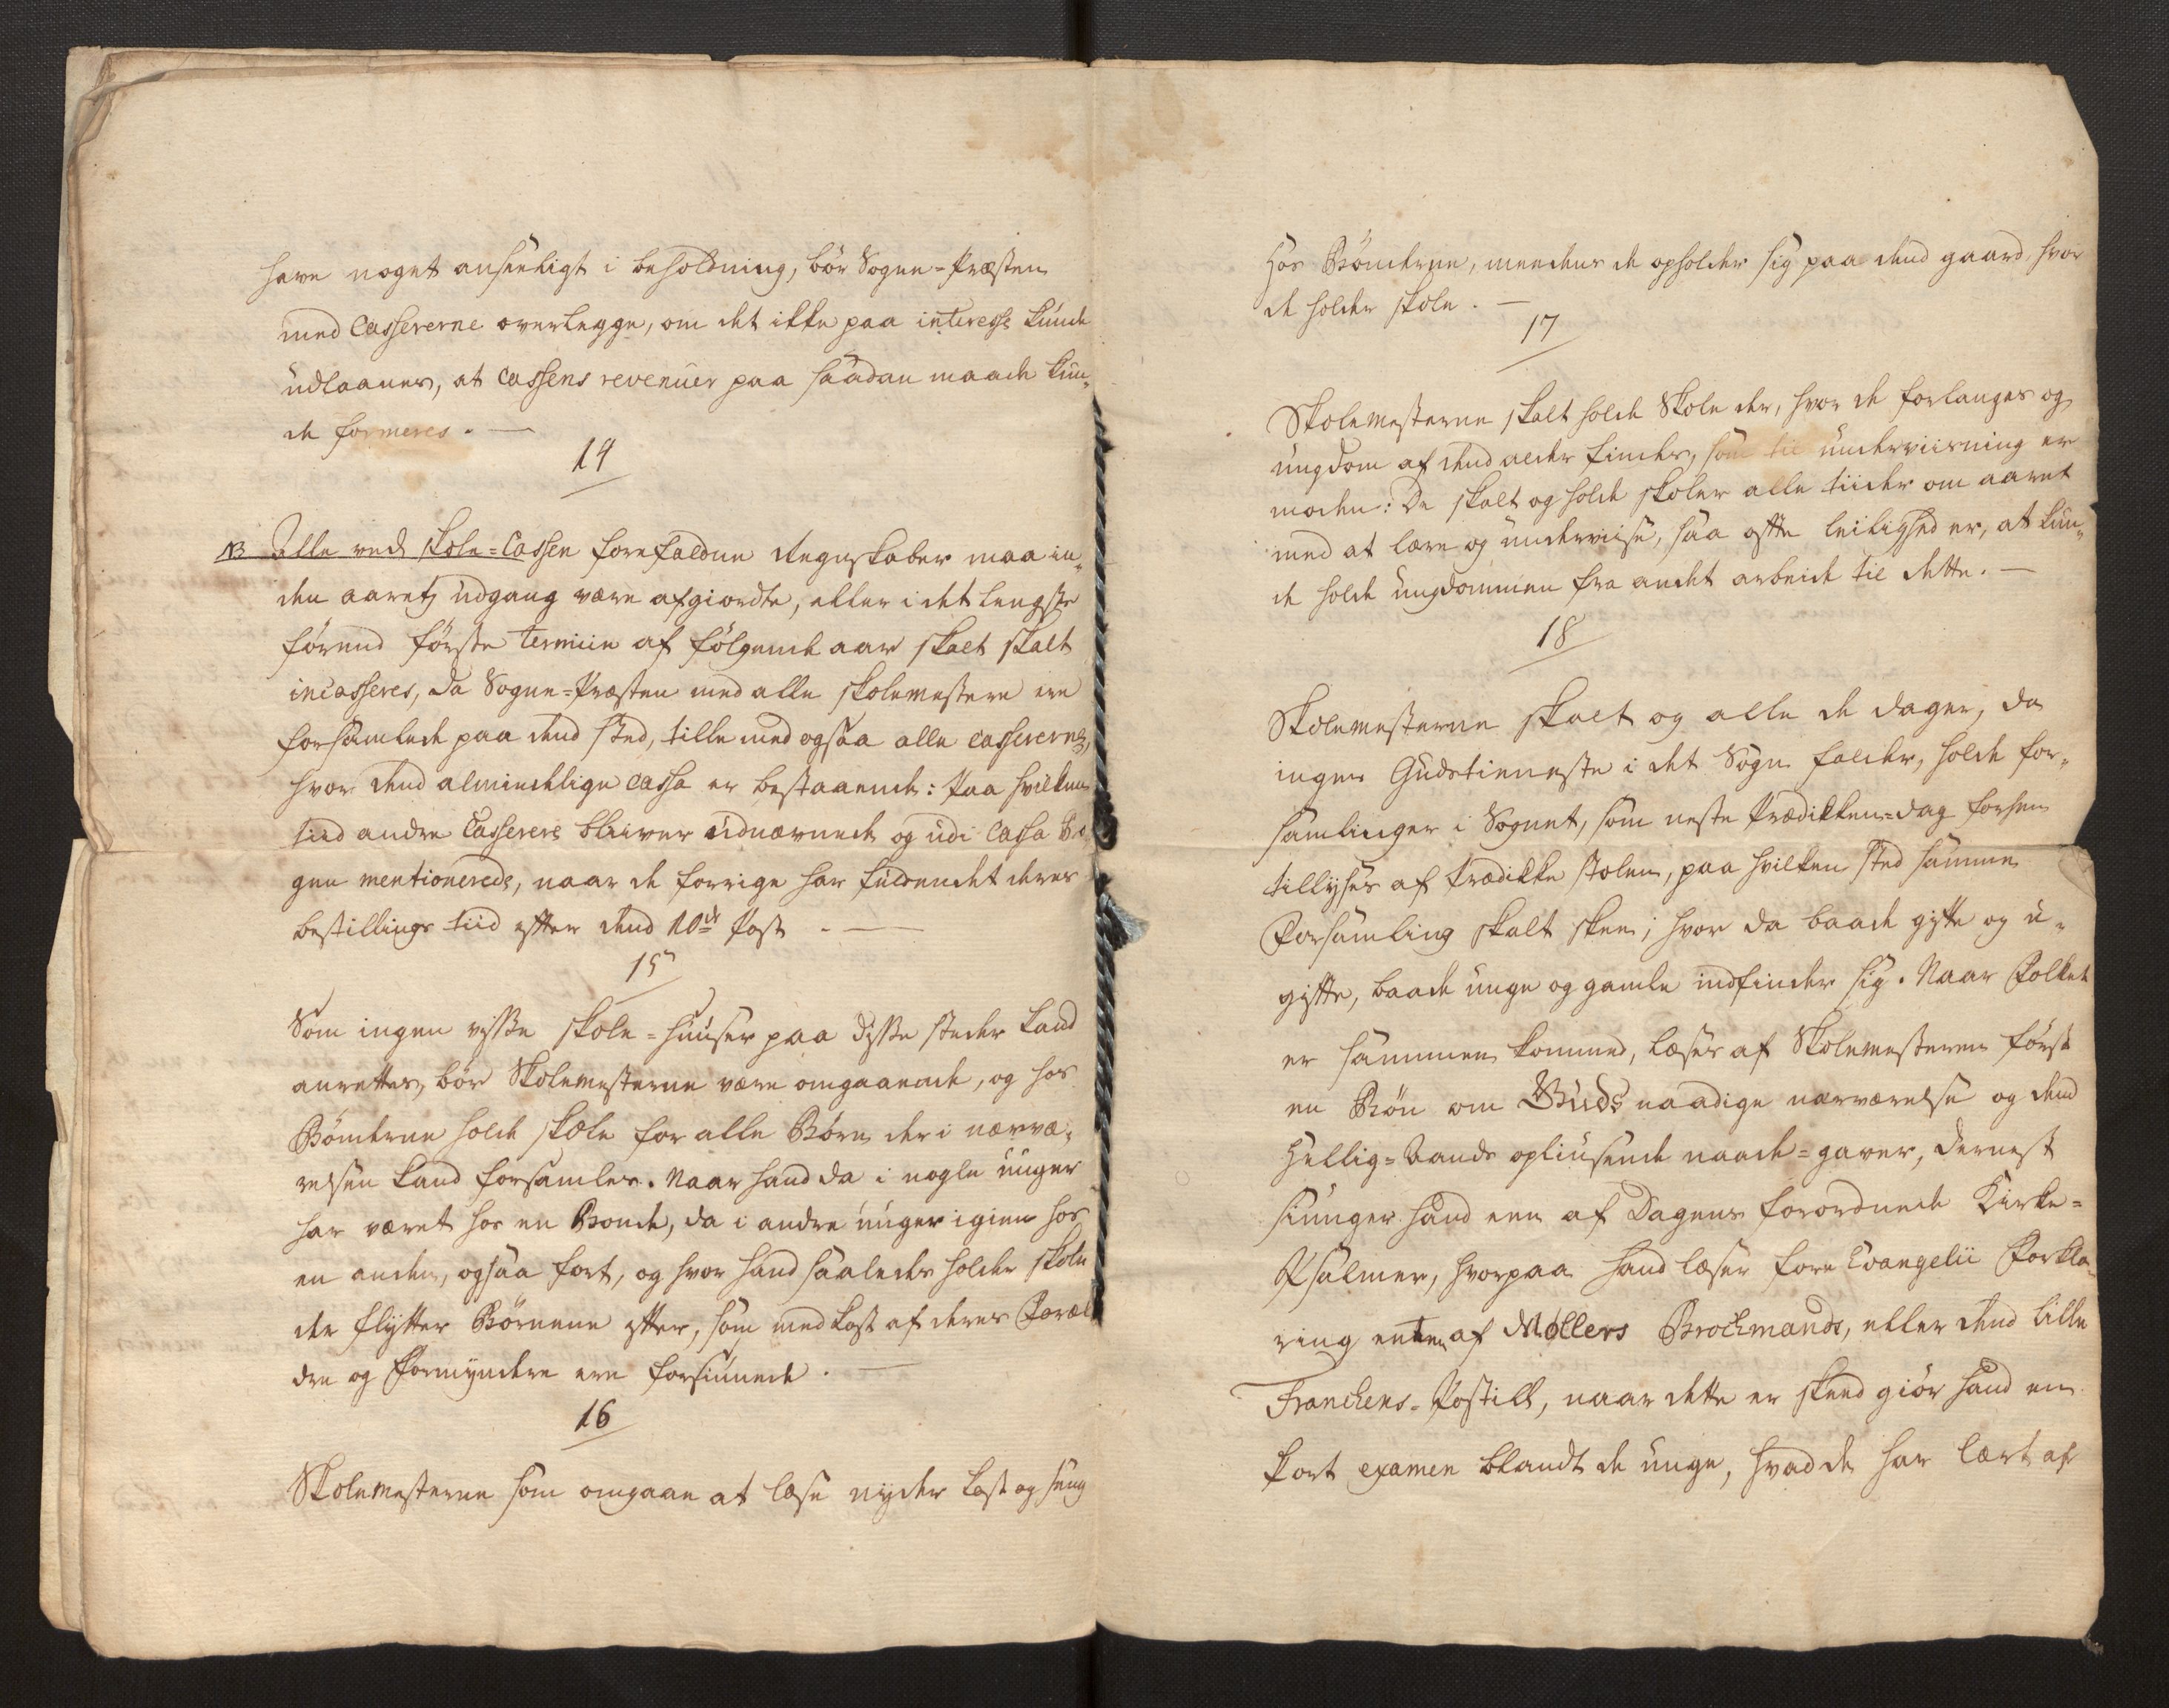 have noget anseeligt i beholdning, bör Sogne=Præsten
med Cassererne overlegge, om det ikke paa interesse kunde
udlaanes, at Cassens revenuer paa saadan maade kun¬
de formeres. —
14
NB Alle ved skole=Cassen forefaldne Regnskaber maa in¬
den aaretz udgang være afgiordte, eller i det lengste
förend förste termiin af fölgende aar skael skall
incasseres, da Sogne=Præsten med alle skolemestere ere
forsamlede paa dend sted, tillemed ogsaa alle Cassererne,
hvor dend almindelige Cassa er bestaaende: Paa hvilken
tiid andre Casserere bliiver udnævnede og udi Cassa Bo
gen mentionerede, naar de forrige har fuldendet deres
bestillings tiid efter dend 10de Post. —
15
Som ingen visse skole=huuser paa disse steder kand
anrettes, bör Skolemesterne være omgaaende, og hos
Bönderne holde skole for alle Börn der i nærvæ¬
relsen kand forsamles. Naar hand da i nogle uuger
har været hos en Bonde, da i andre uuger igien hos
en anden, ogsaa fort, og hvor hand saaledes holder skole
der flytter Börnene efter, som med kost af deres Foræl
dre og Formyndere ere forsiunede. —
16
Skolemesterne som omgaae at læse nyder kost og seng
hos Bönderne, meedens de opholder sig paa dend gaard, hvor
de holder skole. —
17
Skolemesterne skall holde Skole der, hvor de forlanges og
ungdom af dend alder findes, som til underviisning er
moden: De skall og holde skoler alle tiider om aaret
med at lære og underviise, saa ofte leilighed er, at kun¬
de holde ungdommen fra andet arbeide til dette. —
18
Skolemesterne skall og alle de dager, da
ingen Gudstieneste i det Sogn falder, holde for¬
samlinger i Sognet, som neste Prædikken=dag forhen
tillyses af Prædikke stolen, paa hvilken sted samme
Forsamling skall skee; hvor da baade gifte og u¬
gifte, baade unge og gamle indfinder sig. Naar Folket
er sammen kommed, læses af Skolemesteren först
en Bön om Guds naadige nærværelse og dend
Hellig=Aands opliusende naade=gaver, dernest
siunger hand een af Dagens forordnede Kirke=
Psalmer, hvorpaa hand læser fore Evangelii Forkla¬
ring enten af Møllers Brochmands, eller dend lille
Franckens=Postill, naar dette er skeed giör hand en
kort examen blandt de unge, hvad de har lært af